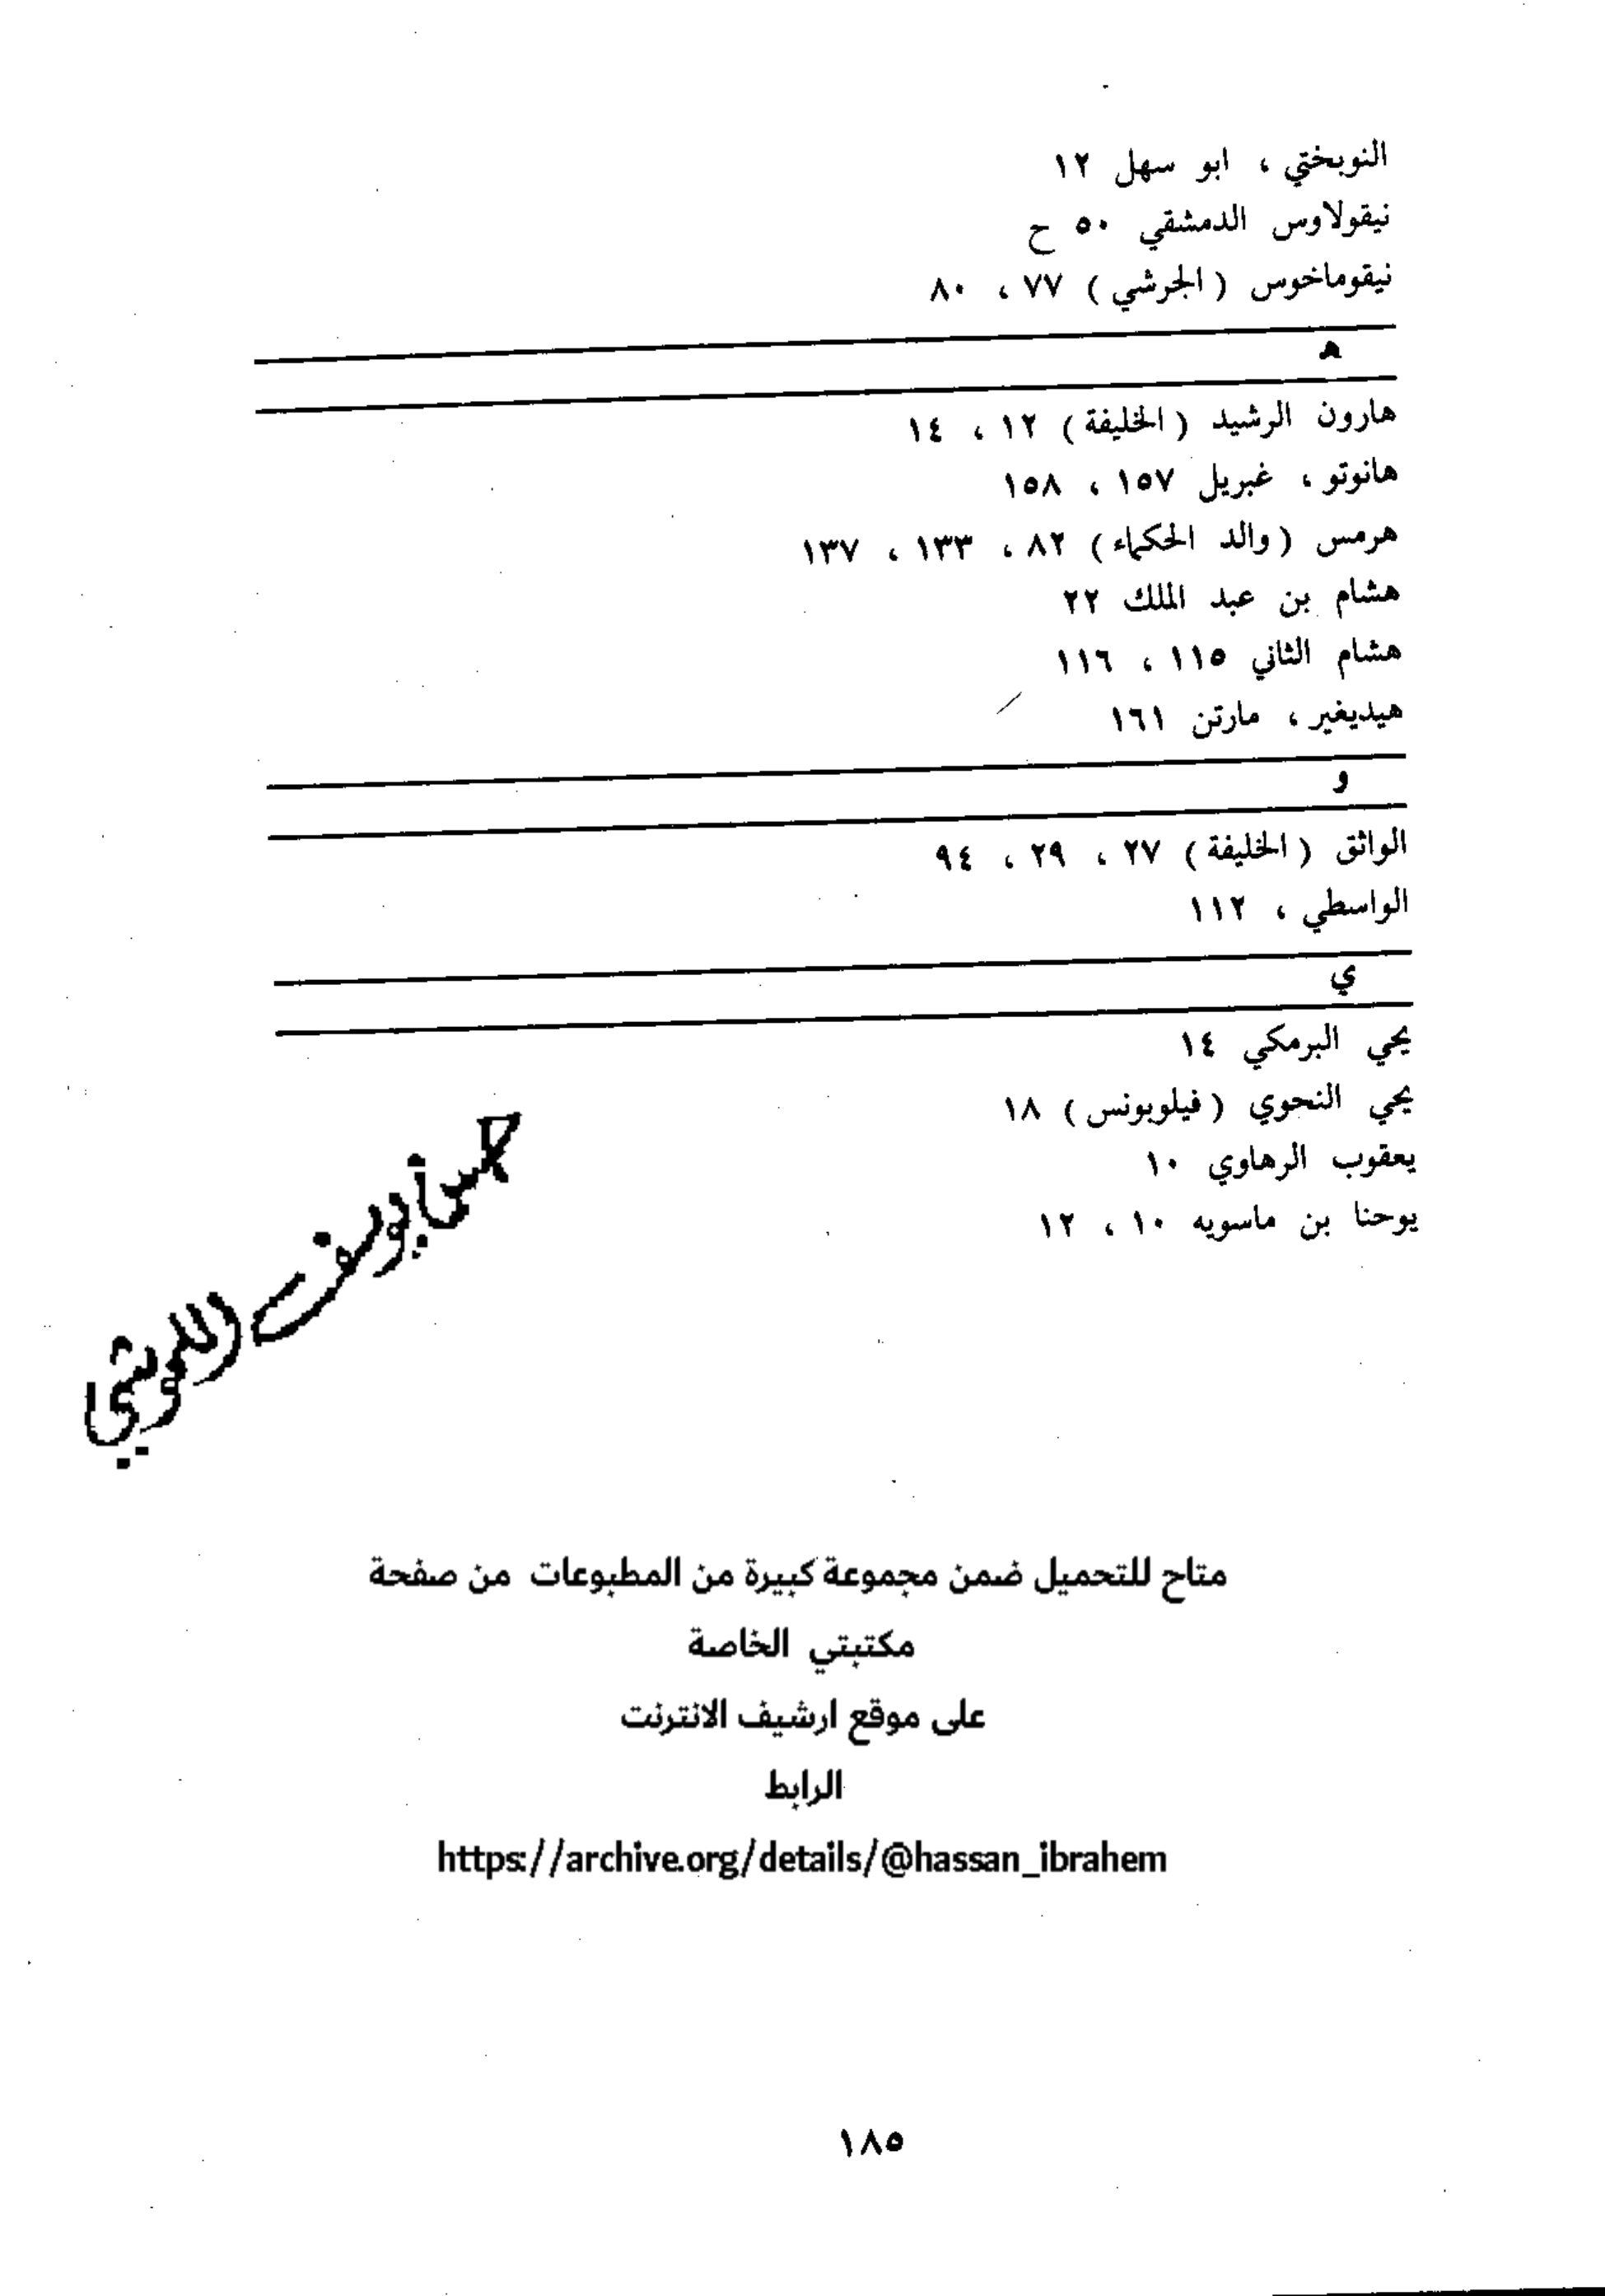 النوبختي ، ابو سهل ١٢
نيقولاوس الدمشقي ٥٠ ح
نيقوماخوس ( الجرشي ) ٧٧ ، ٨٠
ه
هارون الرشيد ( الخليفة ) ١٢ ، ١٤
هانوتو ، غبريل ١٥٧ ، ١٥٨
هرمس ( والد الحكماء ) ٨٢ ، ١٣٣ ، ١٣٧
هشام بن عبد الملك ٢٢
هشام الثاني ١١٥ ، ١١٦
هيديغير ، مارتن ١٦١
و
الواثق ( الخليفة ) ٢٧ ، ٢٩ ، ٩٤
الواسطي ، ١١٢
ي
يحي البرمكي ١٤
يحي النحوي ( فيلوبونس ) ١٨
يعقوب الرهاوي ١٠
يوحنا بن ماسويه ١٠ ، ١٢
متاح للتحميل ضمن مجموعة كبيرة من المطبوعات من صفحة
مكتبتي الخاصة
على موقع ارشيف الانترنت
الرابط
https://archive.org/details/@hassan_ibrahem
١٨٥